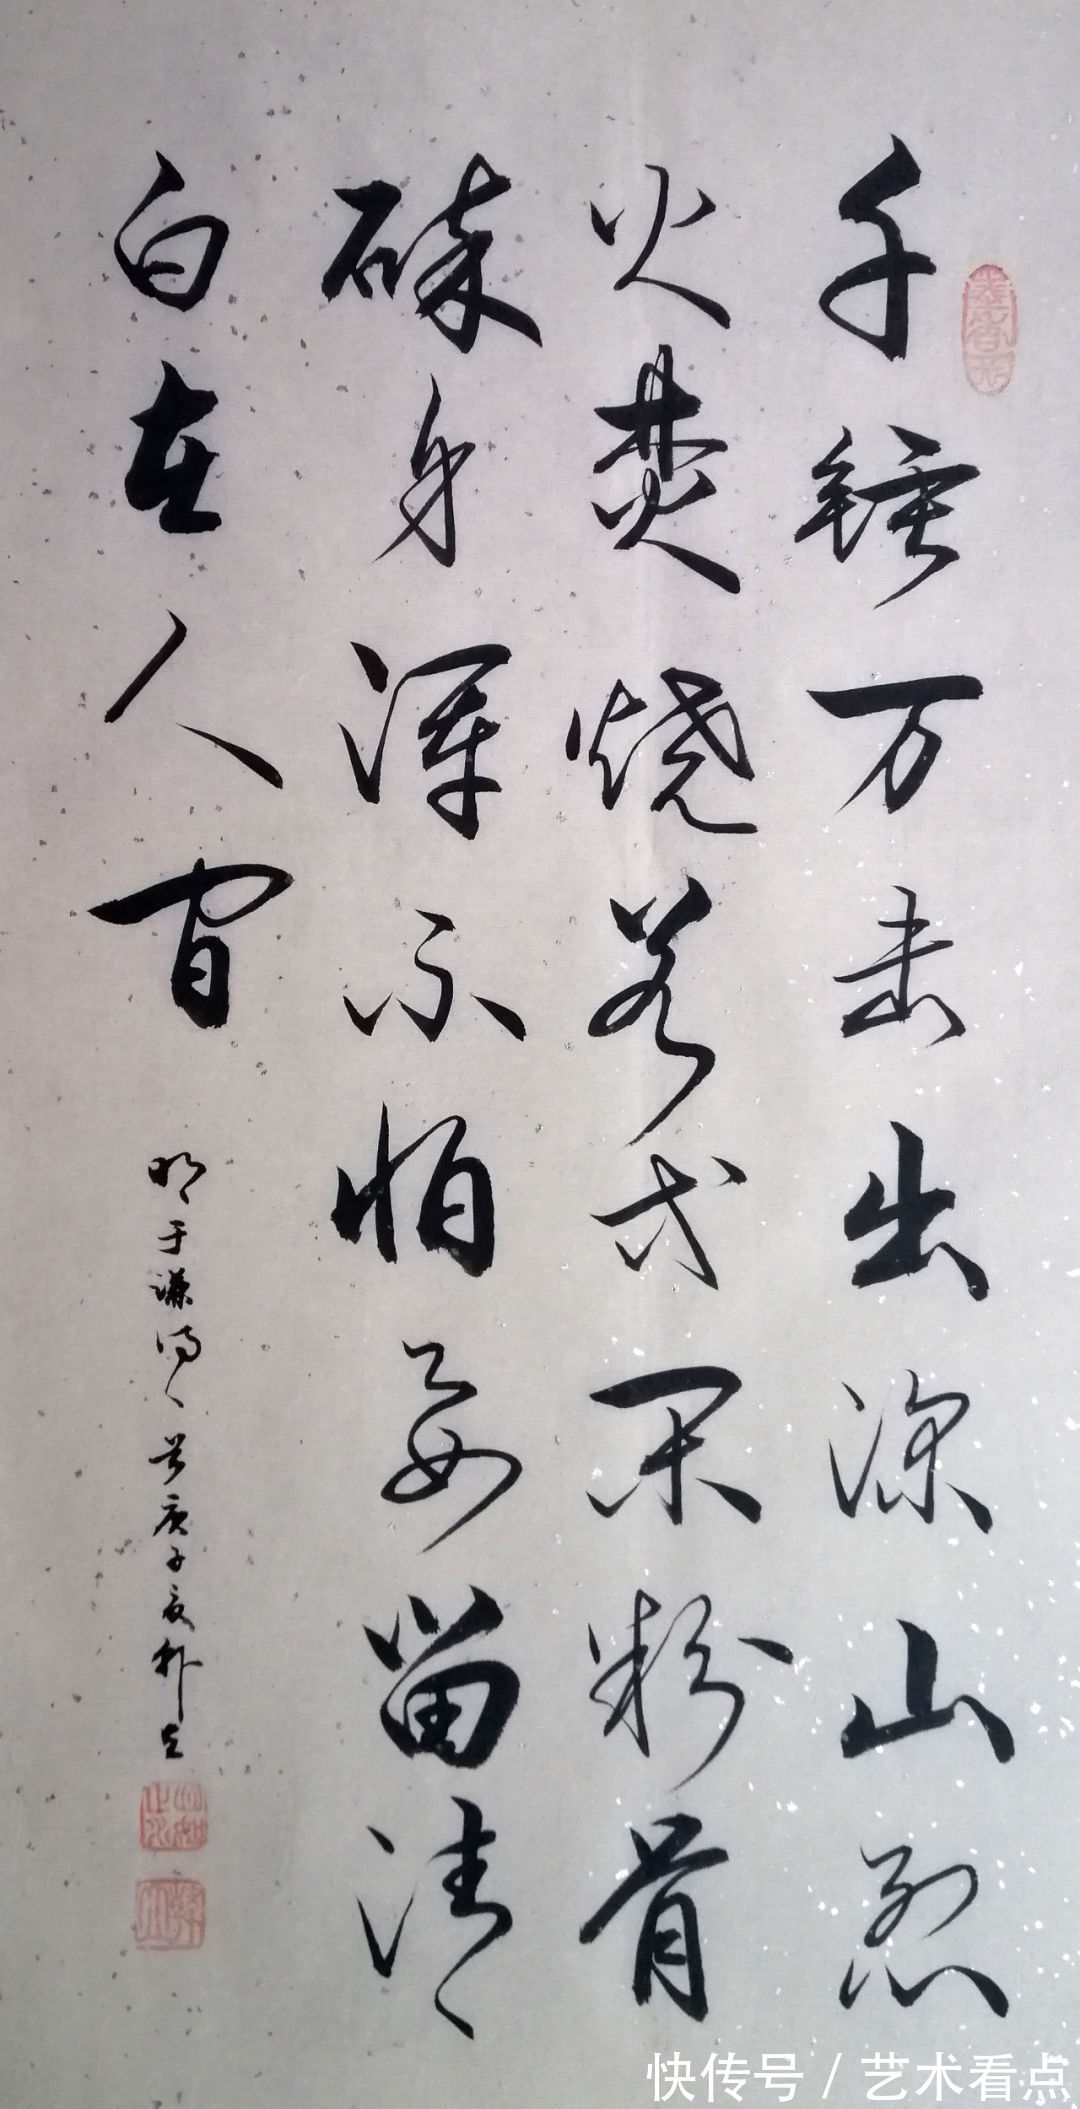 千锤万击出深山烈
火焚烧若等闲粉骨
碎身浑不怕要留清
白在人间
明于谦诗 庚子
快传号 / 艺术看点